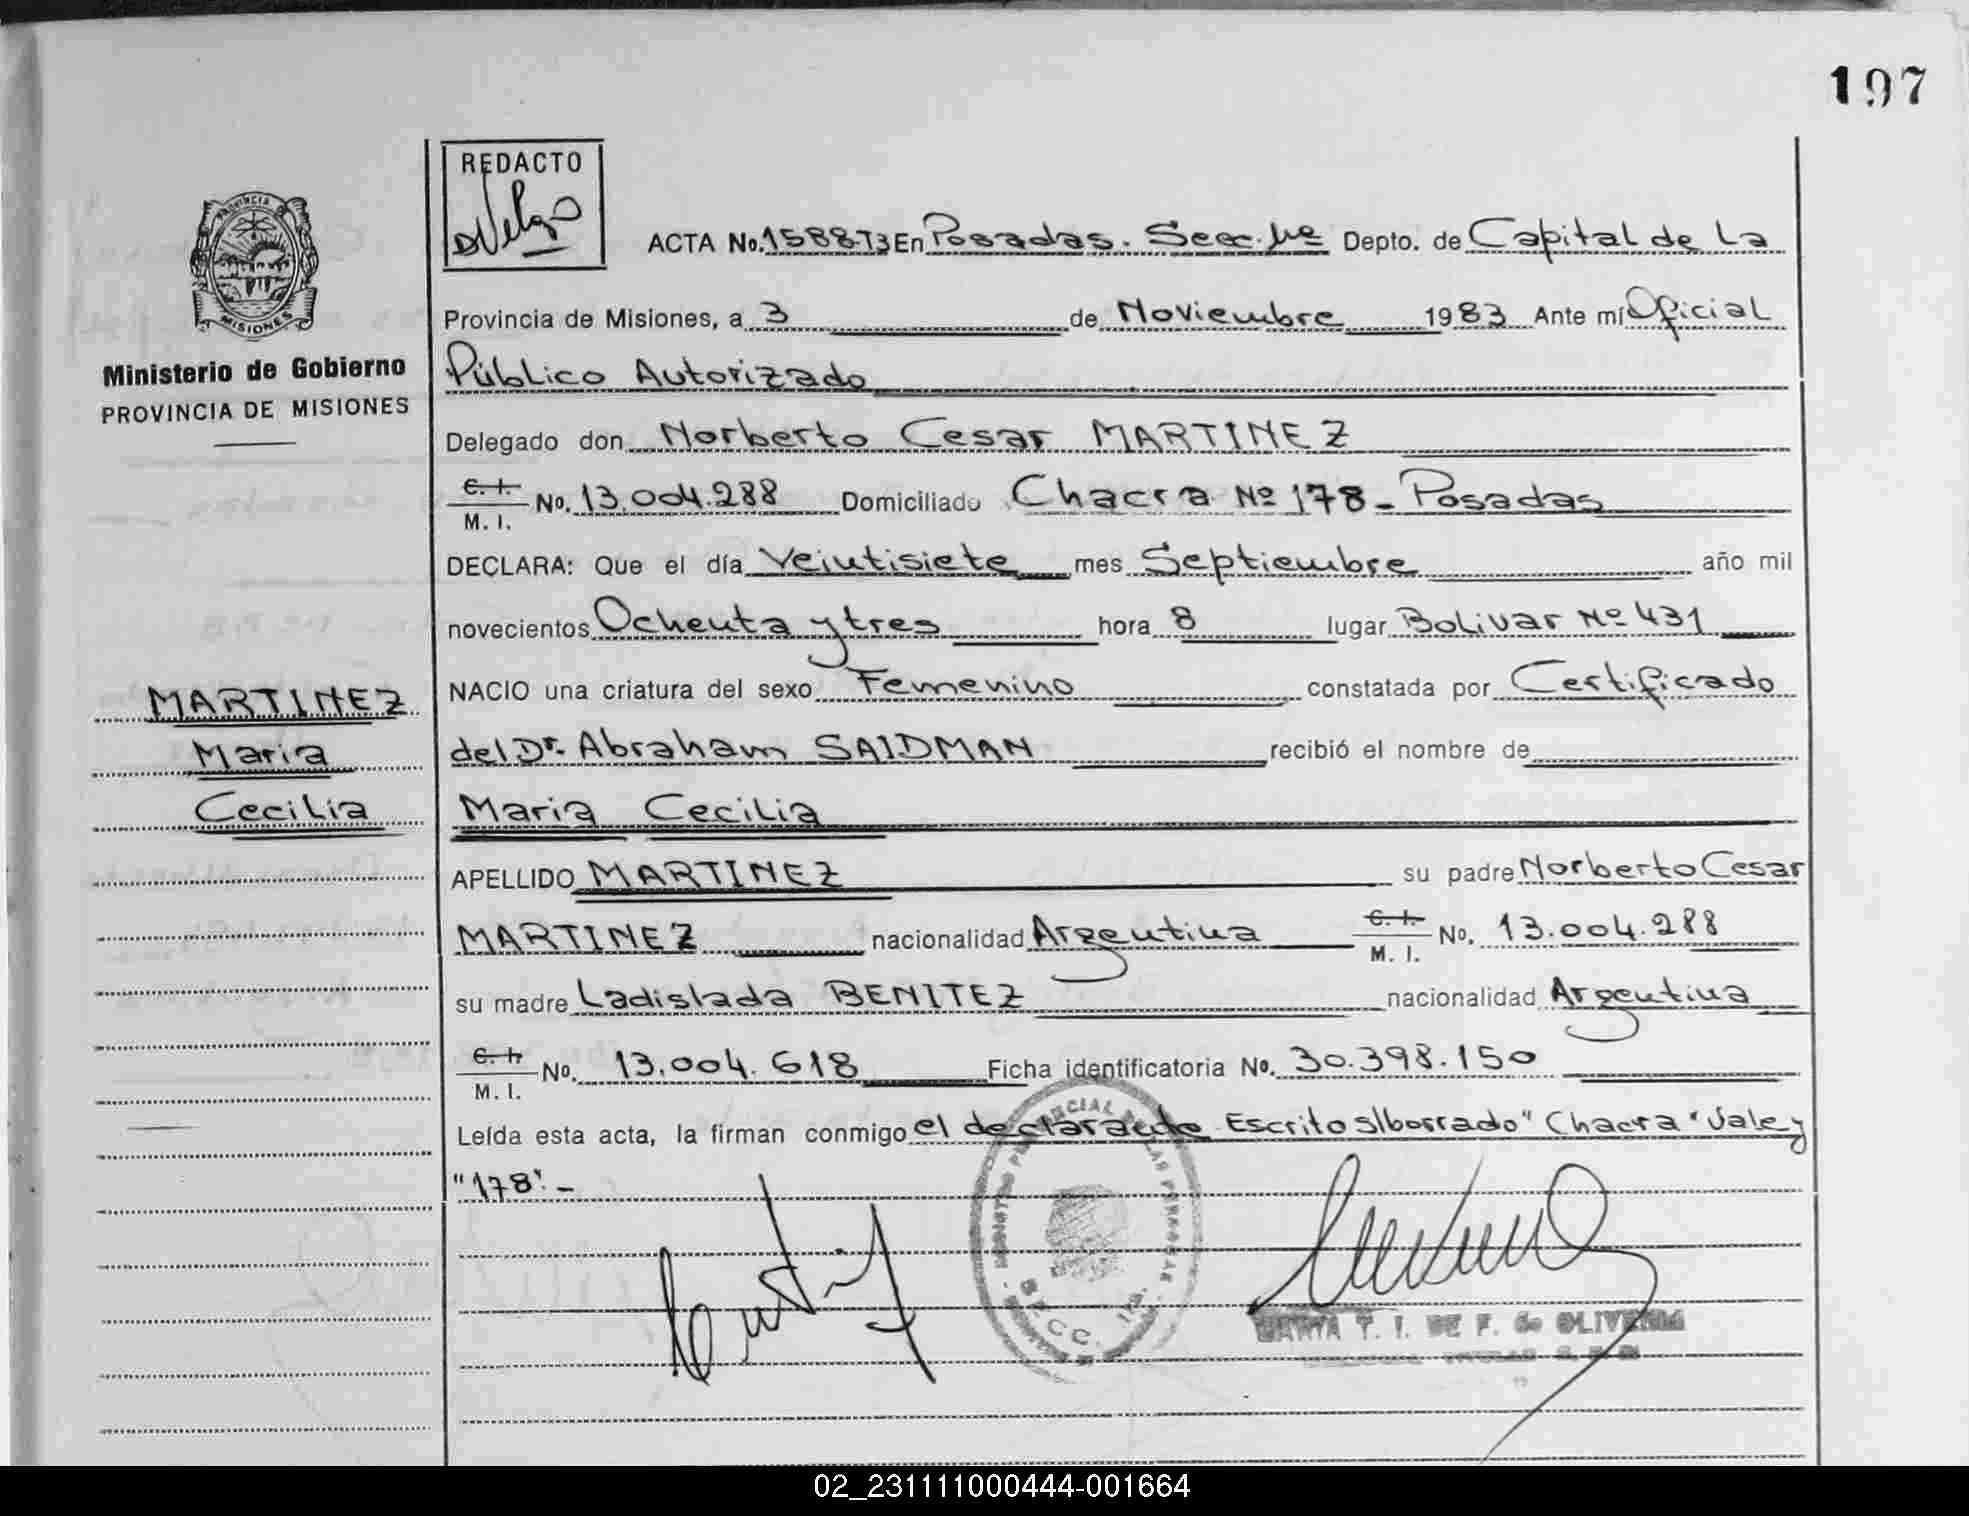 197
REDACTO
ACTA No. 1588-T3 En Posadas. Secc. 1ra Depto. de Capital de La
Provincia de Misiones, a 3 de Noviembre 1983 Ante mí Oficial
Público Autorizado
Delegado don Norberto Cesar MARTINEZ
C. I. / M. I. No. 13.004.288 Domiciliado Chacra Nº 178 - Posadas
DECLARA: Que el día Veintisiete mes Septiembre año mil
novecientos Ochenta y tres hora 8 lugar Bolivar Nº 431
NACIO una criatura del sexo Femenino constatada por Certificado
del Dr. Abraham SAIDMAN recibió el nombre de
Maria Cecilia
APELLIDO MARTINEZ su padre Norberto Cesar
MARTINEZ nacionalidad Argentina C. I. / M. I. No. 13.004.288
su madre Ladislada BENITEZ nacionalidad Argentina
C. I. / M. I. No. 13.004.618 Ficha identificatoria No. 30.398.150
Leída esta acta, la firman conmigo el declarante Escrito s/borrado "Chacra" Vale y
"178".-
PROVINCIA DE
MISIONES
Ministerio de Gobierno
PROVINCIA DE MISIONES
MARTINEZ
Maria
Cecilia
T. I. DE F. de OLIVEIRA
02_231111000444-001664